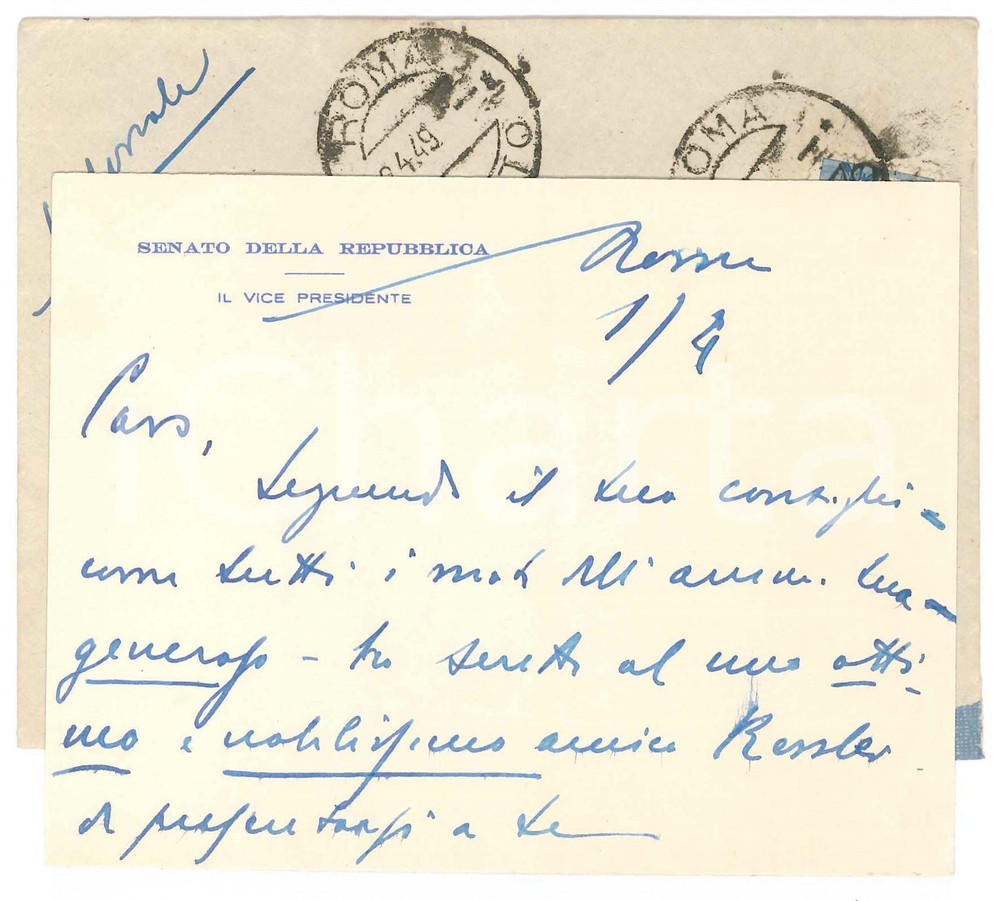 ROMA
4.49
ROMA
SENATO DELLA REPUBBLICA
IL VICE PRESIDENTE
Roma
1/4
Caro,
Seguendo il tuo consiglio=
come tutti i moti dell'animo tuo -
generoso - ho scritto al mio otti-
mo e nobilissimo amico Kessler
di presentarsi a te